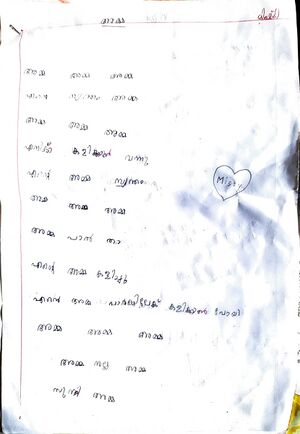 അമ്മ
അമ്മ അമ്മ അമ്മ
സ്വന്തം അമ്മ
അമ്മ അമ്മ അമ്മ
കളിക്കാൻ വന്നു
എന്റെ അമ്മ സ്വന്തം
അമ്മ അമ്മ അമ്മ
അമ്മ പാൽ താ
എന്റെ അമ്മ കളിച്ചു
എന്റെ അമ്മ കളിക്കാൻ പോയി
അമ്മ അമ്മ അമ്മ
അമ്മ നല്ല അമ്മ
സുന്ദരി അമ്മ